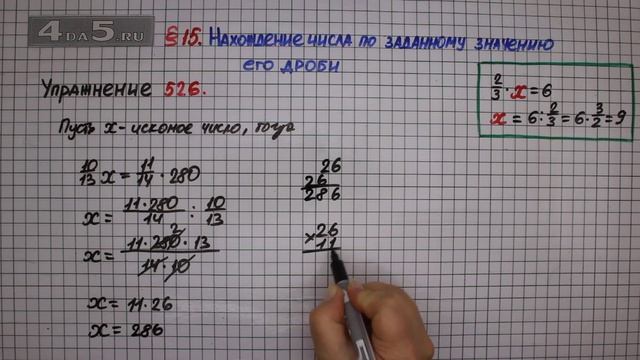 4DA5.RU
§15. Нахождение числа по заданному значению
его дроби
Упражнение 526.
2/3 · x = 6
x = 6 : 2/3 = 6 · 3/2 = 9
Пусть x - искомое число, тогда
10/13 x = 11/14 · 280
x = 11·280/14 : 10/13
2
x = 11·280·13/14·10
x = 11·26
x = 286
26
26
286
×26
11